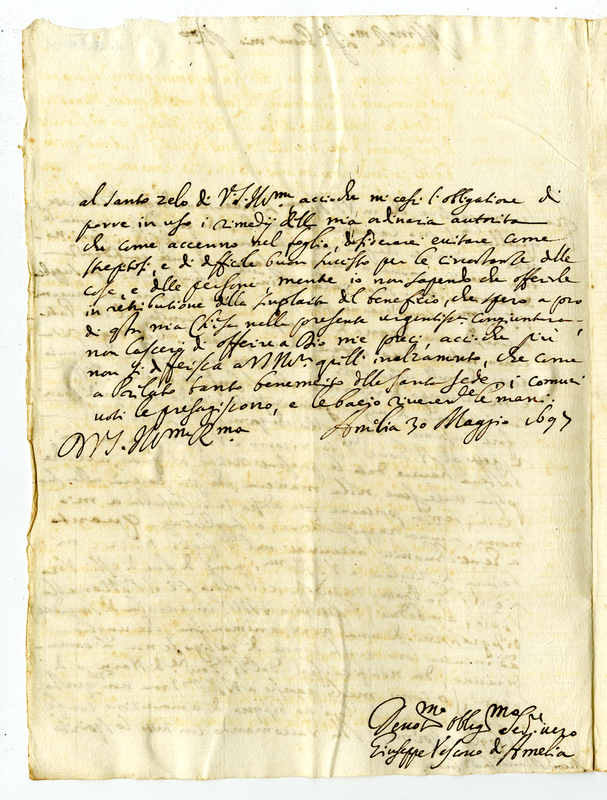 al Santo zelo di V.S. Ill.ma acciòche mi cessi l'obligatione di
porre in uso i rimedij della mia ordinaria autorità
che come accenno nel foglio, desiderarei evitare come
strepitosi, e di difficile buon successo per le circostanze delle
cose, e delle persone, mentre io non sapendo che offerirle
in retributione della del beneficio, che spero a prò
di q.sta mia Chiesa nella presente urgentiss.a congiuntura
non lascerò di offerire a Dio mie preci, acciòche più
non si differisca a V.S. Ill.ma quell' inalzamento, che come
a Prelato tanto benemerito della Santa Sede, i comuni
voti le presagiscono, e le bacio riverente le mani.
D V.S. Ill.ma R.ma Amelia 30 Maggio 1697
Devo.mo Oblig.mo Ser.re vero
Giuseppe Vescovo di Amelia